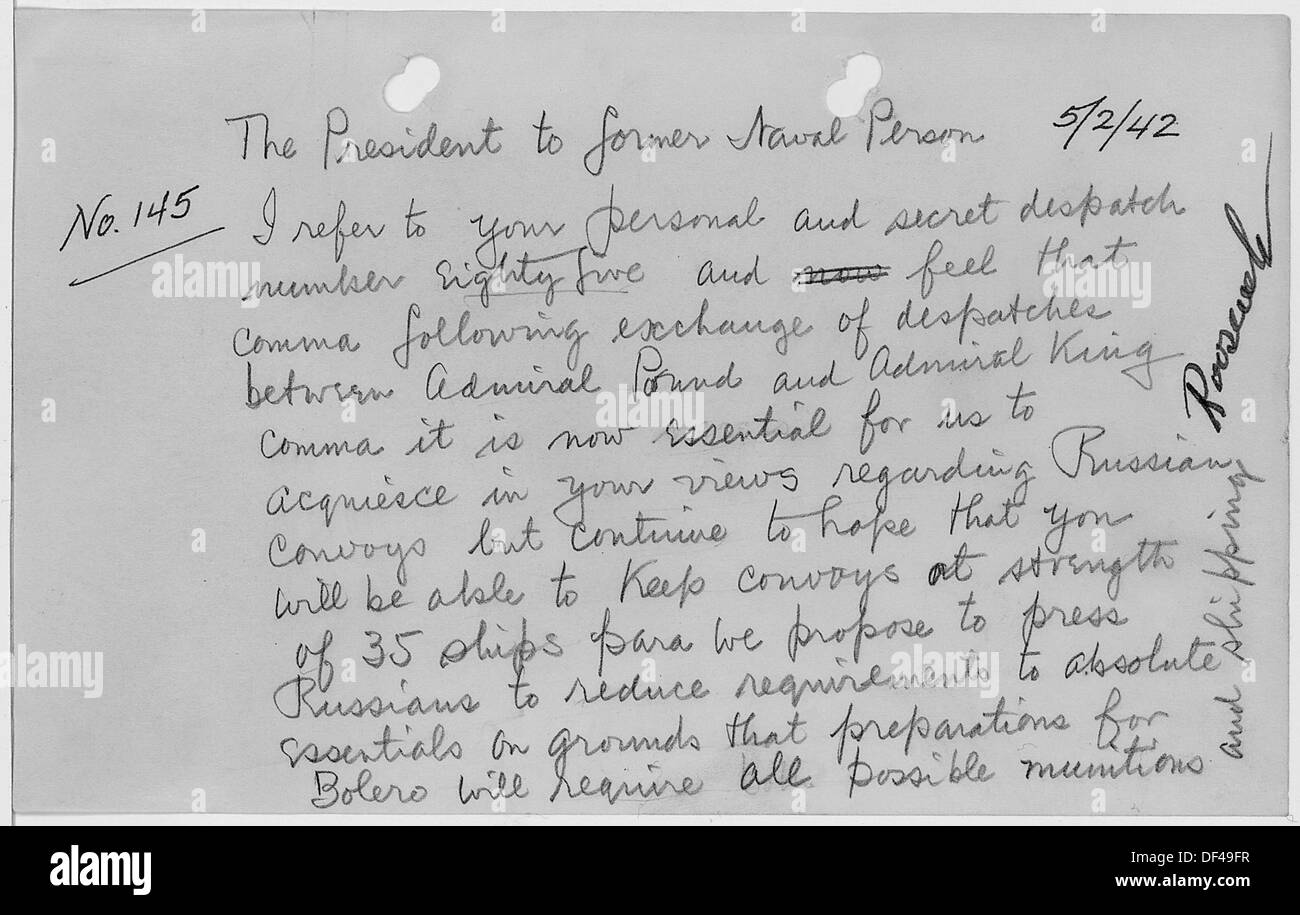 The President to former Naval Person 5/2/42
No. 145
I refer to your personal and secret despatch
number Eighty five and now feel that
comma following exchange of despatches
between Admiral Pound and Admiral King
comma it is now essential for us to
acquiesce in your views regarding Russian
convoys but continue to hope that you
will be able to keep convoys at strength
of 35 ships para We propose to press
Russians to reduce requirements to absolute
essentials on grounds that preparations for
Bolero will require all possible munitions
and shipping
Roosevelt
alamy
Image ID: DF49FR
www.alamy.com